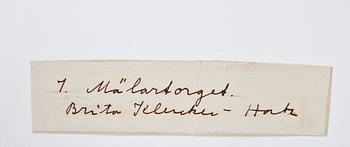 7. Mälartorget.
Brita Klercker - Horte